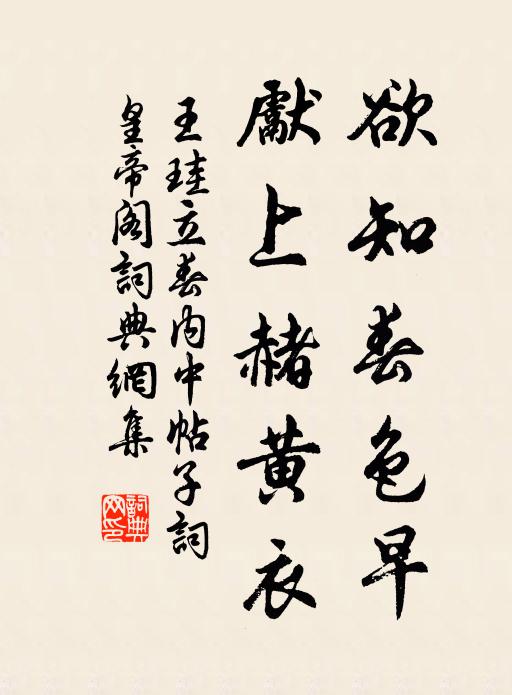 欲知春色早
獻上赭黃衣
王珪立春內中帖子詞
皇帝閣詞典網集
詞典
网印